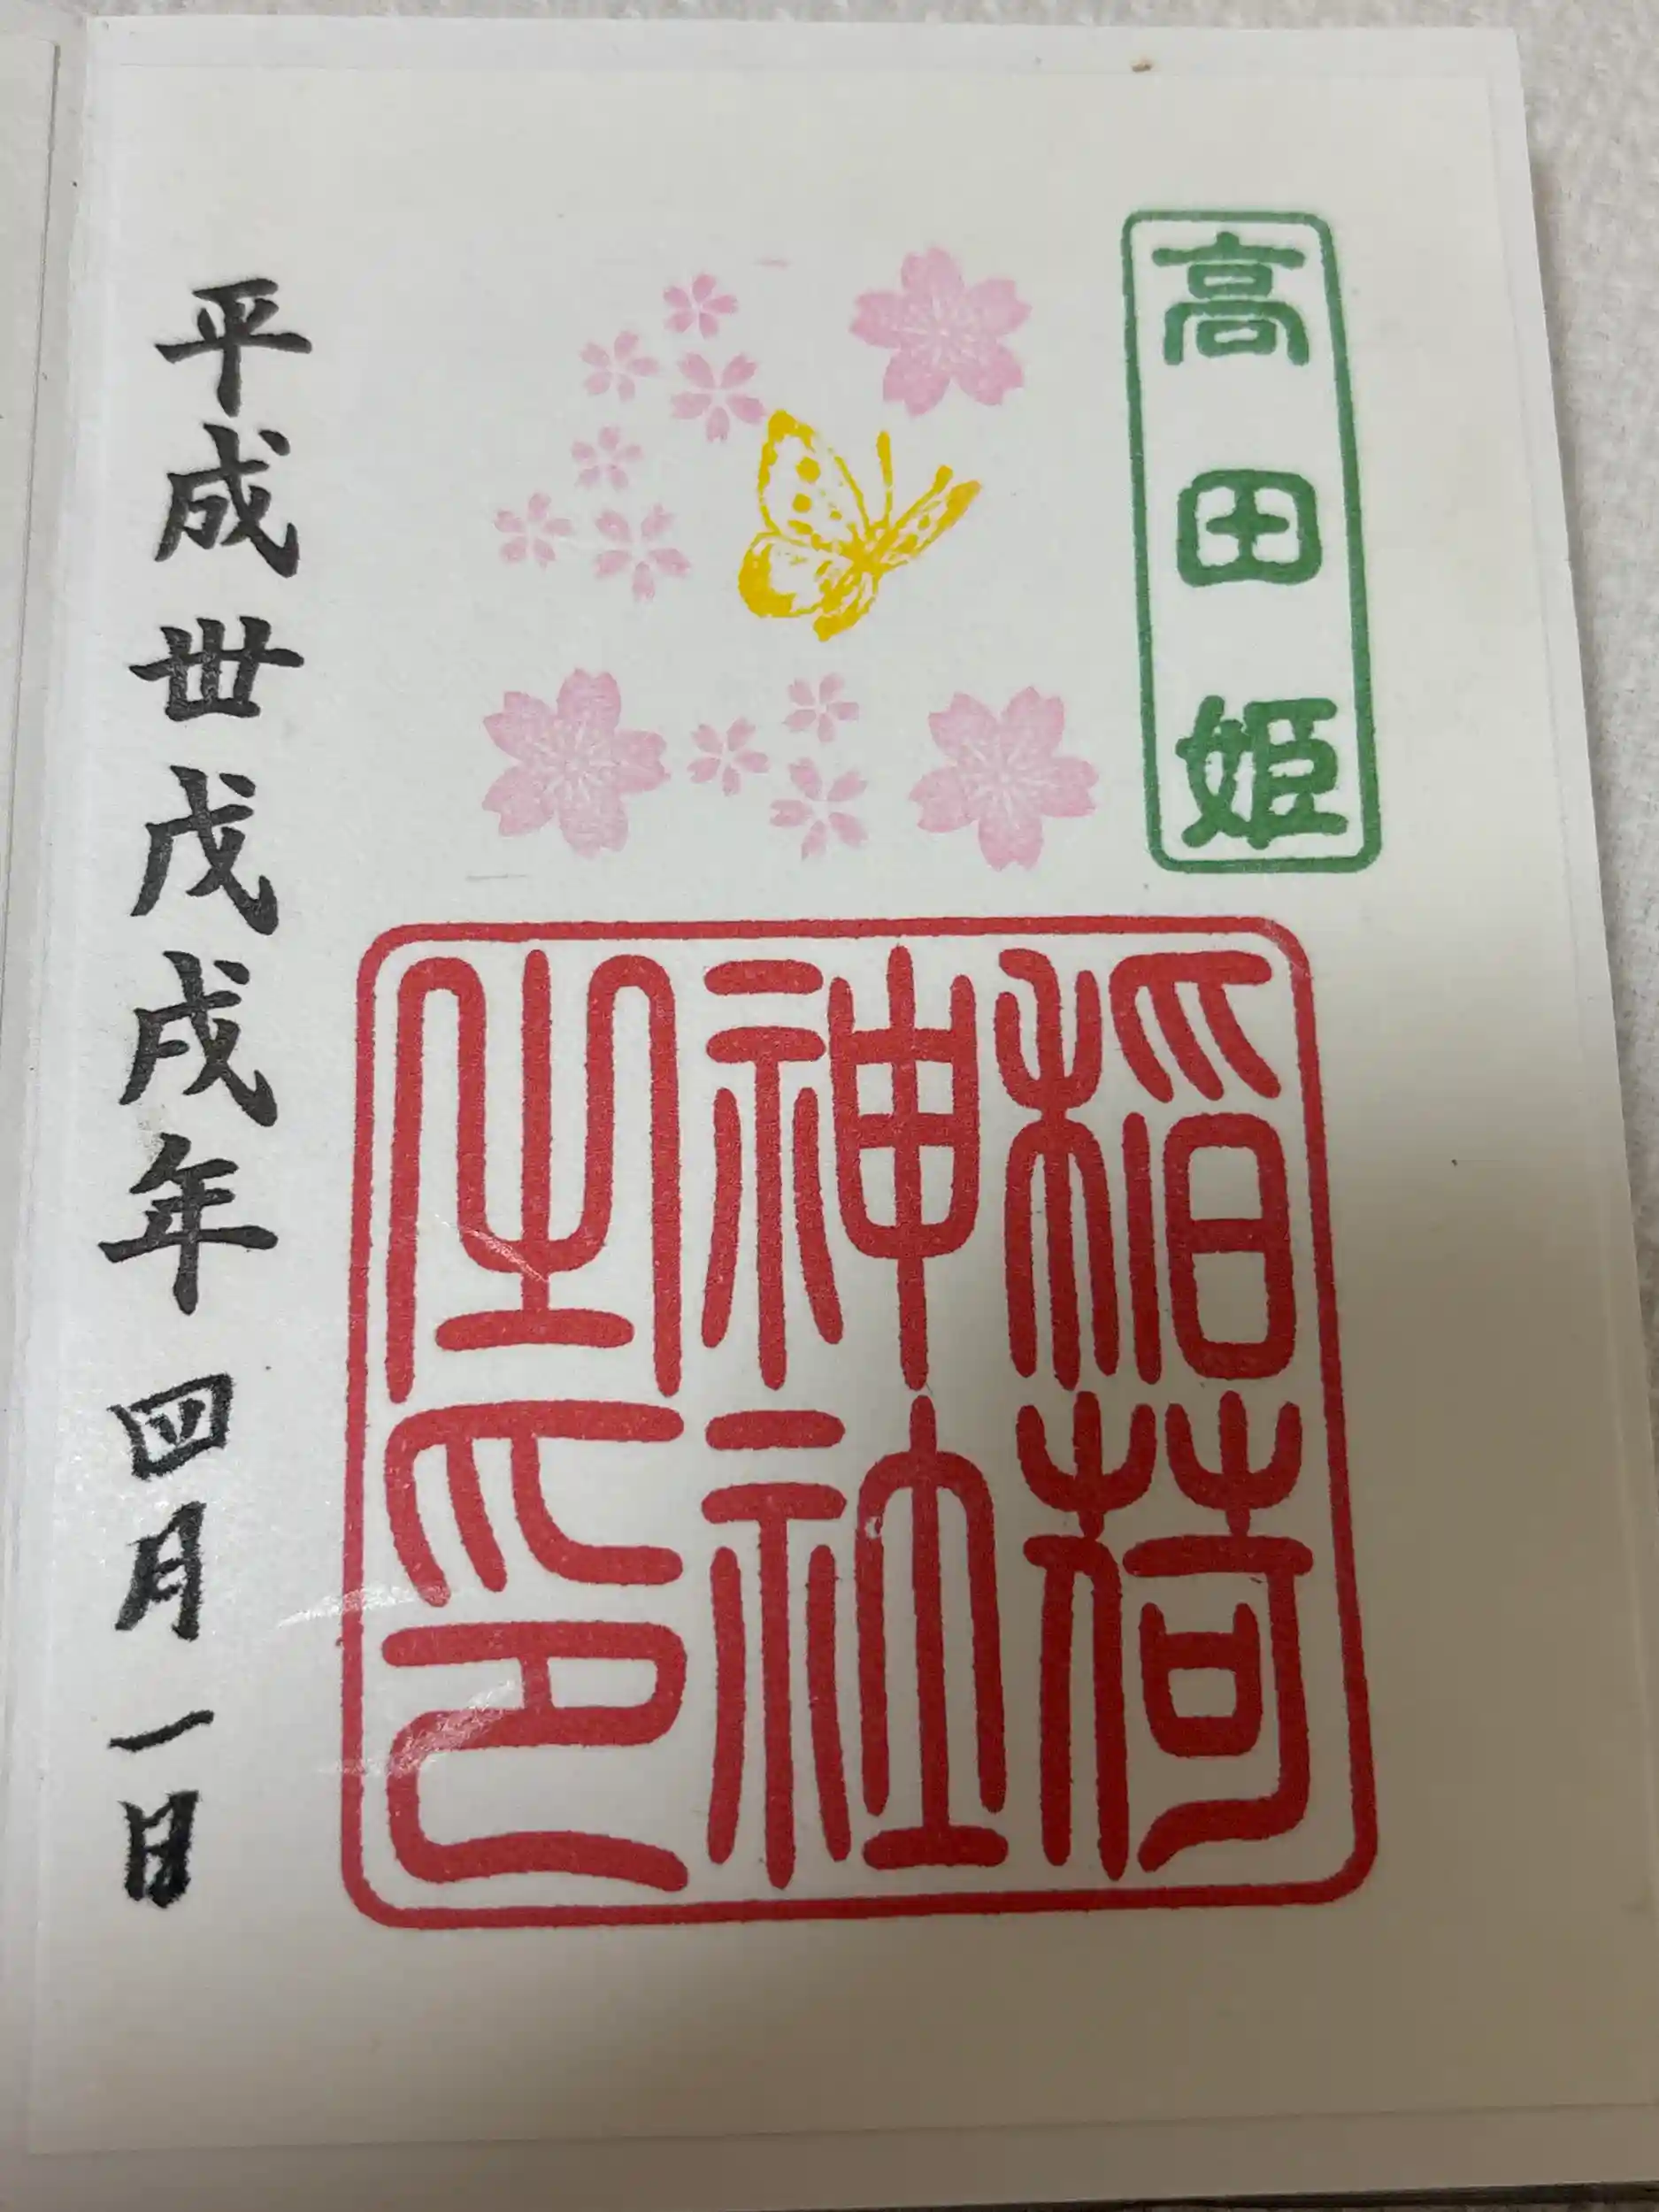 高田姫
稲荷
神社
之印
平成丗戊戌年四月一日